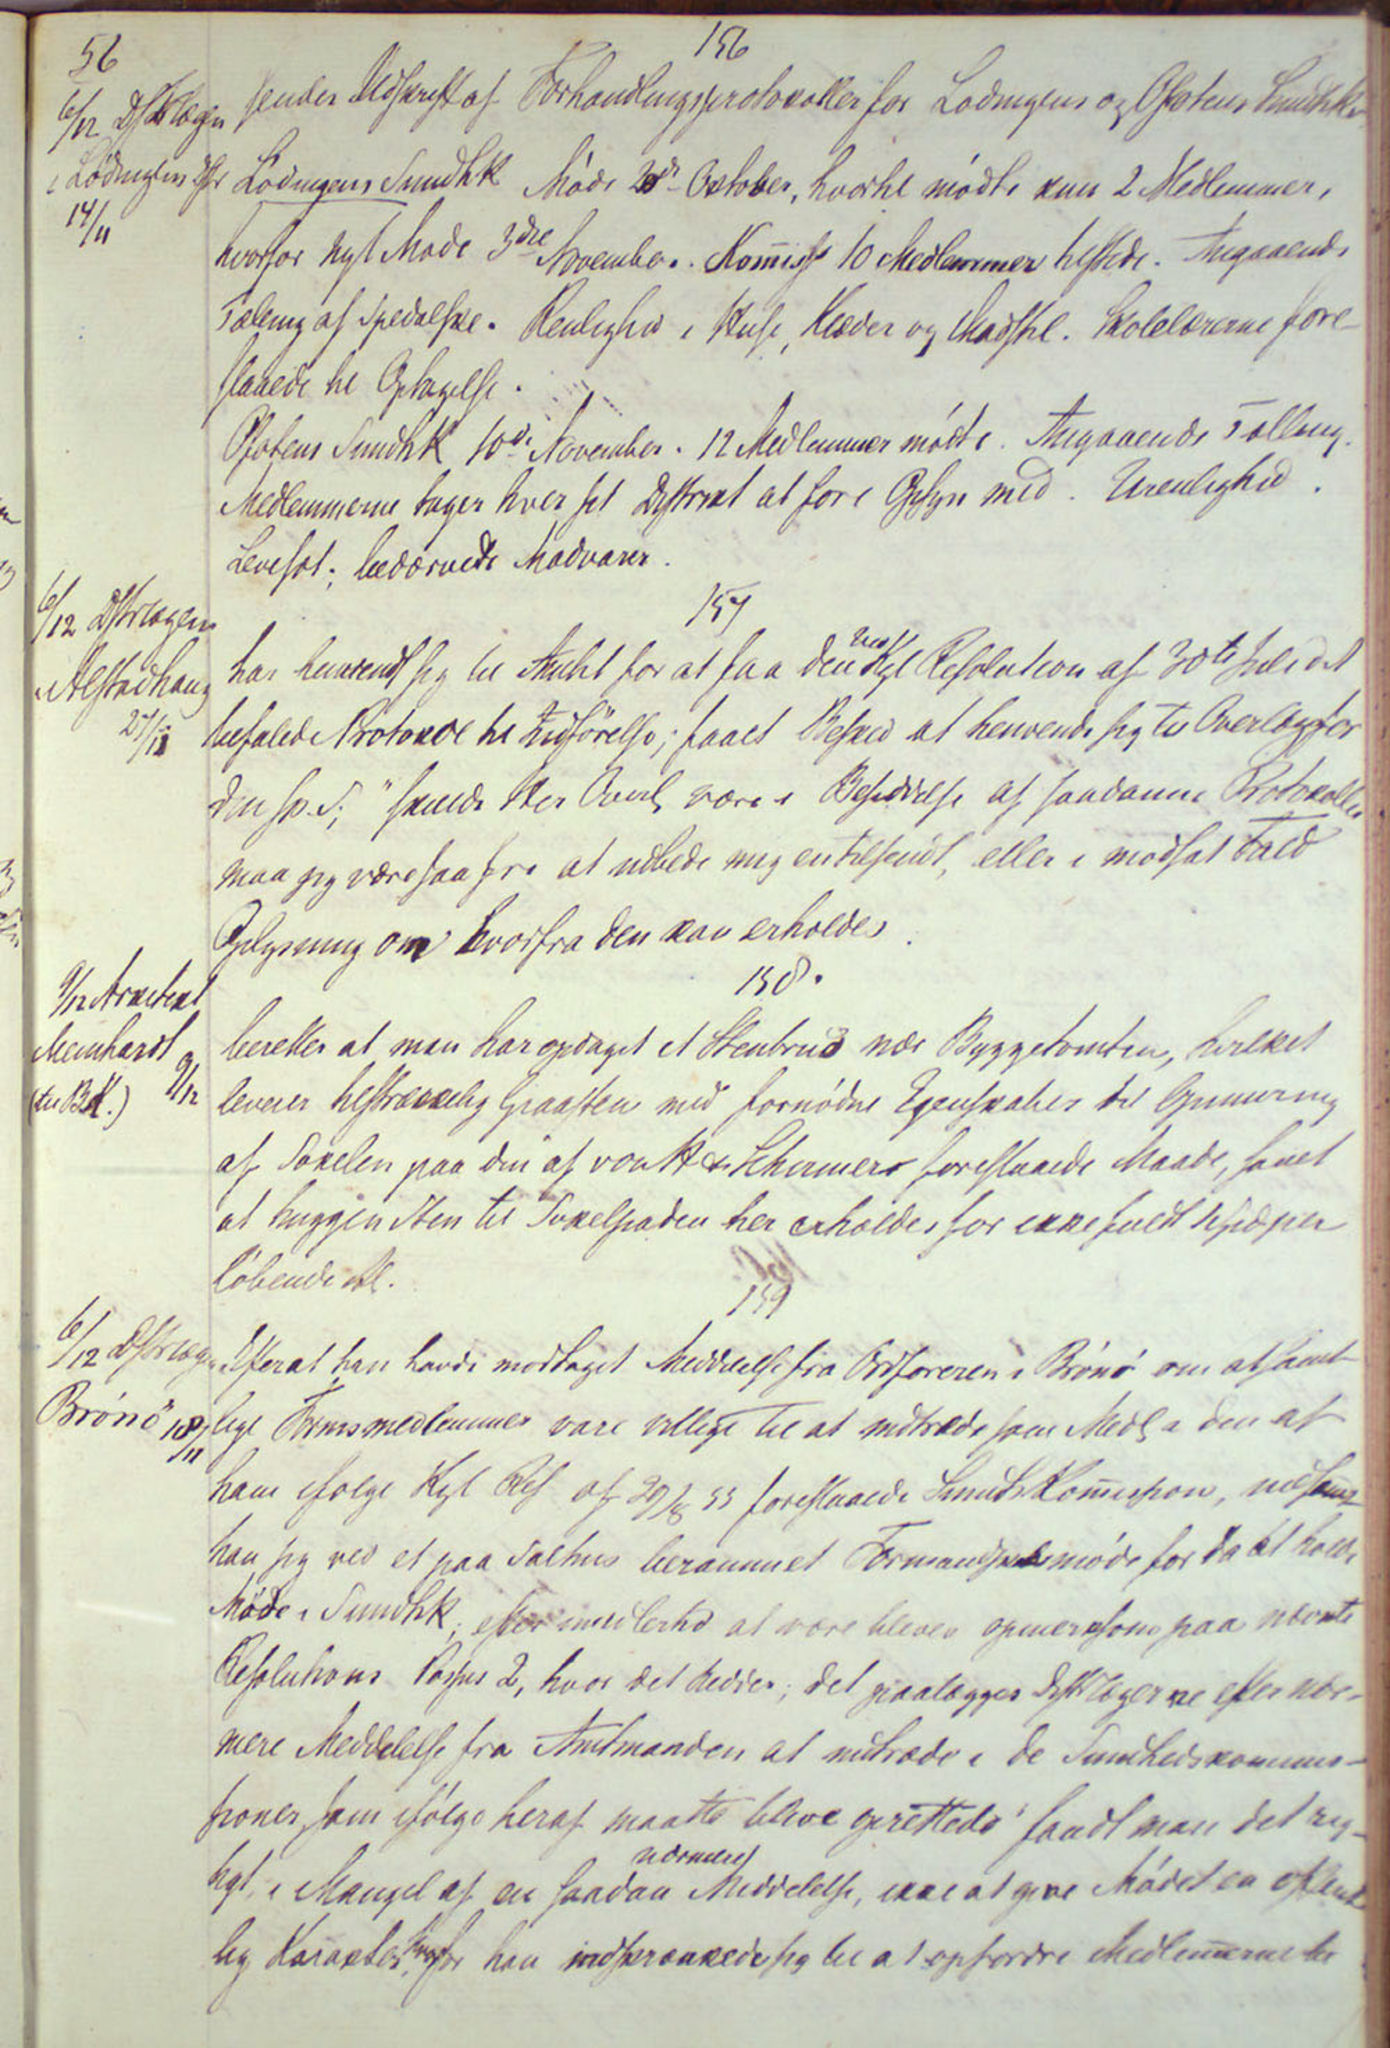 56
156
6/12 Dstrlægen
i Lødingens Dstr
14/11
sender Udskrift af Forhandlingsprotokoller for Lodingens og Ofotens Sundhk.
Lodingens Sundhk Møde 2den October, hvortil mödte kun 2 Medlemmer,
hvorfor nyt Mode 3die November. Kom̅iss 10 Medlemmer tilstede. Angaaende
Tæling af Spedalske. Renlighed i Huse, Klæder og Madstel. Skolelærerne fore-
slaaede til Optagelse.
Ofotens Sundhk 10de November. 12 Medlemmer mödte. Angaaende Tælling.
Medlemmerne tager hver sit Distrikt at fore Opsyn med. Urenlighed.
Levesæt; bedærvede Madvarer.
157
6/12 Dstrlægen
i Alstadhaug
27/11
har henvendt sig til Amtet for at faa den ved Kgl Resolution af 30te Juli det
befalede Protokol til Indförelse; faaet Besked at henvende sig til Overlægen for
den sp. S; "skulde Hr Overl være i Besiddelse af saadanne Protokoller
maa jeg være saa fri at udbede mig en tilsendt, eller i modsat Fald
Oplysning om hvorfra den kan erholdes.
158.
9/12 Arkitekt
Meinhardt
(til BK.) 9/12
beretter at man har opdaget et Stenbrud nær Byggetomten, hvilket
leverer tilstrækkelig Graasten med fornødne Egenskaber til Opmuring
af Sokelen paa den af von H & Schirmer foreslaaede Maade, samt
at huggen Sten til Sokelfladen her erholdes for ikke fuldt per
löbende Al.
159
6/12 Dstrlægen
Brönö 18/11
Efterat han havde modtaget Meddelelse fra Ordföreren i Brönö om at samt-
lige Formsmedlemmer vare villige til at indtræde som Medl i den af
ham ifolge Kgl Res af 30/7 55 foreslaaede Sundhkom̅ission, indfandt
han sig ved et paa Salhus berammet Formandskabsmöde for da at holde
Möde i Sundhk; efter imidlertid at være bleven opmerksom paa nævnte
Resolutions Passus 2, hvor det hedder; det paalægges Dstrlægerne efter nær-
mere Meddelelse fra Amtmanden at indtræde i de Sundhedskommis-
sioner, som ifölge heraf maatte blive oprettede" fandt man det rig-
tigt, i Mangel af en saadan nærmere Meddelelse, ikke at give Mödet en offent-
lig Karakter, hvorfor han indskrænkede sig til at opfordre Medlem̅erne til